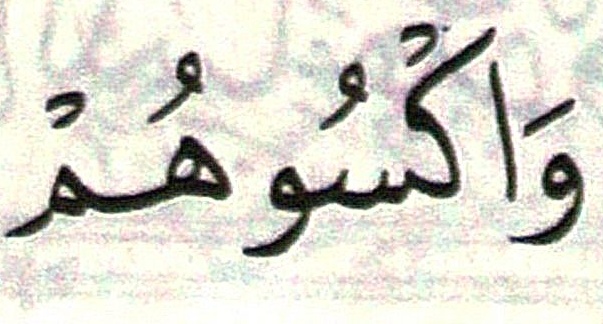 وَاكْسُوهُمْ